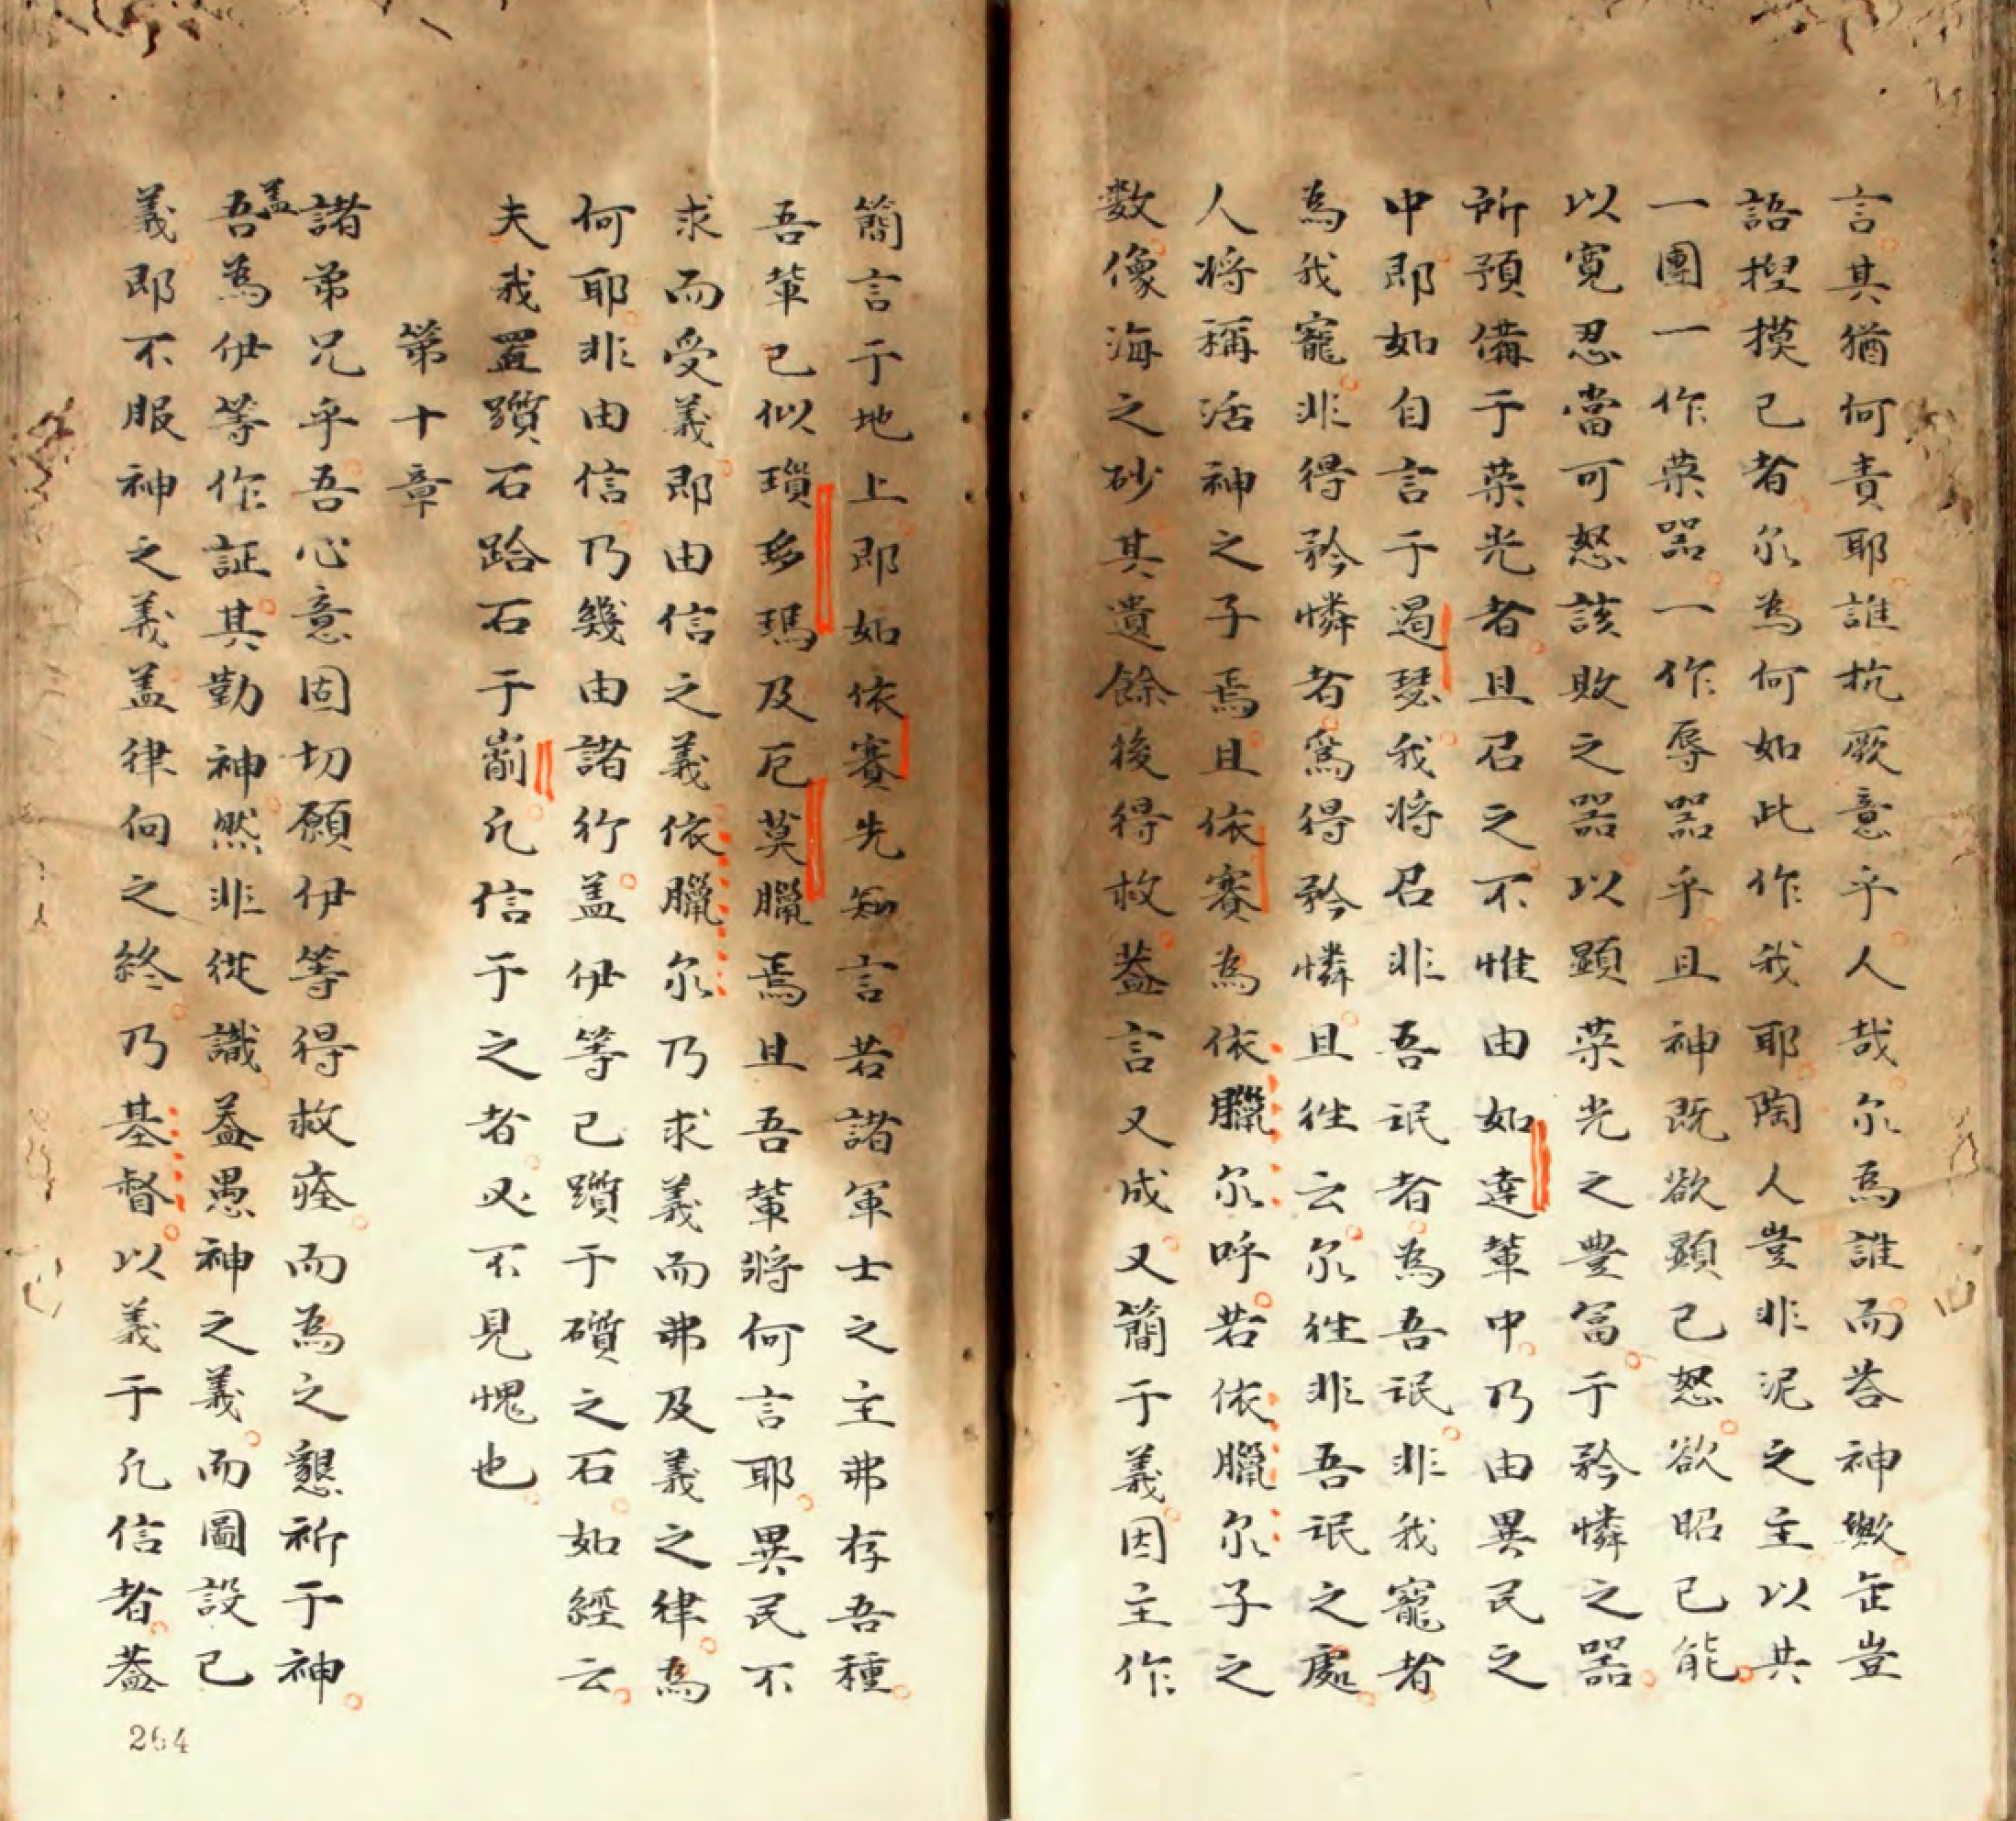 言其猶何責耶誰抗厥意乎人哉尔為誰而荅神歟缶豈
語揑摸己者尔為何如此作我耶陶人豈非泥之主以共
一團一作榮器一作辱器乎且神既欲顯己怒欲昭己能
以寬忍當可怒該敗之器以顯榮光之豐富于矜憐之器
所預備于榮光者且召之不惟由如達輩中乃由異民之
中即如自言于遏瑟我將召非吾氓者為吾氓非我寵者
為我寵非得矜憐者為得矜憐且徃云尔徃非吾氓之處
人將稱活神之子焉且依賽為依臘尔呼若依臘尔子之
數像海之砂其遺餘後得救葢言又成又簡于義因主作
簡言于地上即如依賽先知言若諸軍士之主弗存吾種
吾輩已似瑣多瑪及厄莫臘焉且吾輩將何言耶異民不
求而受義即由信之義依臘尔乃求義而弗及義之律為
何耶非由信乃幾由諸行盖伊等已躓于礩之石如經云
夫我置躓石跲石于𪨶凢信于之者必不見愧也
第十章
諸弟兄乎吾心意固切願伊等得救痊而為之懇祈于神
盖吾為伊等作証其勤神然非從識葢愚神之義而圖設己
義即不服神之義盖律向之終乃基督以義于凢信者葢
264